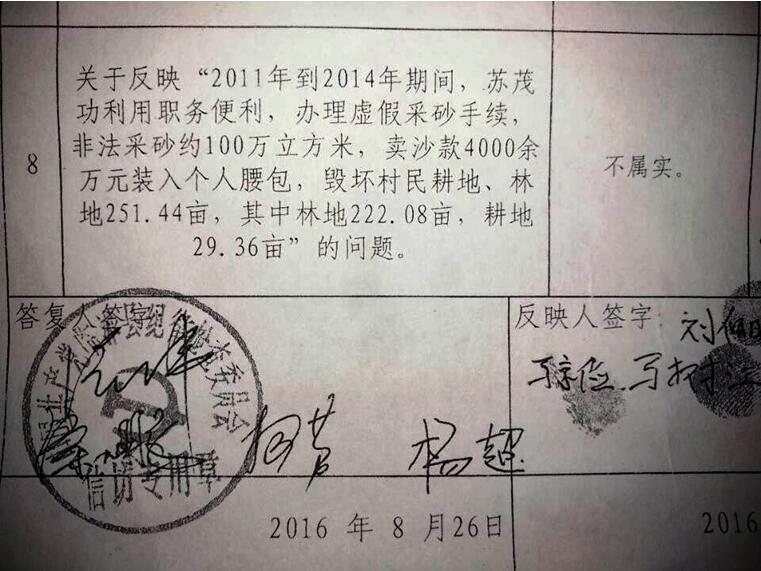 8
关于反映“2011年到2014年期间，苏茂
功利用职务便利，办理虚假采砂手续，
非法采砂约100万立方米，卖沙款4000余
万元装入个人腰包，毁坏村民耕地、林
地251.44亩，其中林地222.08亩，耕地
29.36亩”的问题。
不属实。
答复人签字：
反映人签字：
杨超
信访专用章
2016 年 8 月26日
2016